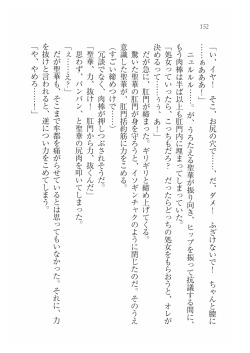 152
「い、イヤ！　そこ、お尻の穴で……だ、ダメ！　ふざけないで！　ちゃんと膣に
……ぁぁぁあ！」
ニュルルル……が、うろたえる聖華が振り向き、ヒップを振って抗議する間に、
もう肉棒は半ば以上も肛門内に埋まってしまっていた。
「処女っていったら、こっちもだろ？　だったらどっちの処女をもらおうと、オレが
決めて、いいって……う、あ！」
だが急に、肛門が締まった。ギリギリと締め上げてくる。
驚いた聖華が、肛門が身を守ろうと、イソギンチャクのように閉じたのだ。そのうえ
意識した聖華が、肛門括約筋に力をこめてしまう。
「すごい締めつけで……！」
冗談でなく、肉棒が押しつぶされそうだ。
「聖華、力、抜け！　肛門から力、抜くんだ」
思わず、パンパン！　と聖華の尻肉を叩いてしまう。
「え？　ええ？」
だが聖華も、そこまで牟都を痛がらせているとは思ってもいなかった。それに、力
を抜けと言われると、逆につい力をこめてしまう。
「や、やめろ……！」